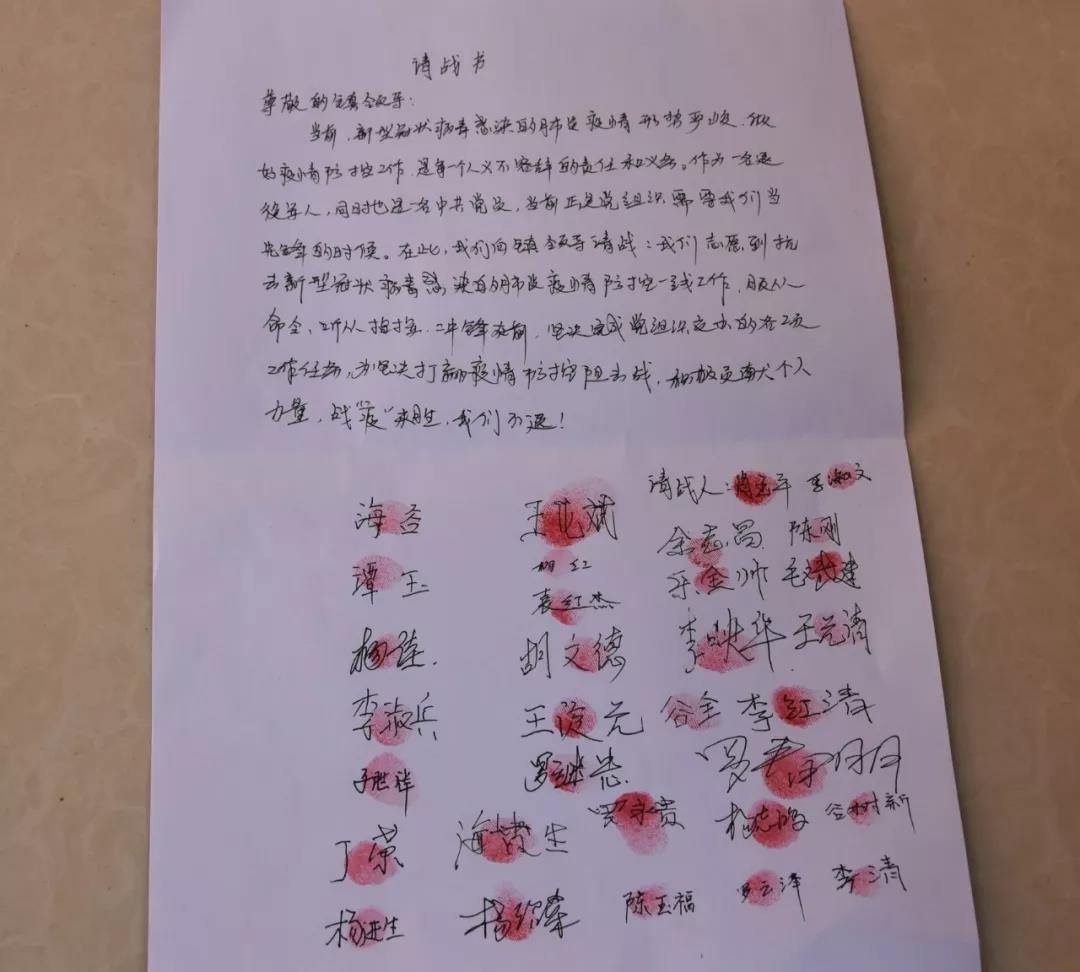 请战书
尊敬的镇领导：
当前，新型冠状病毒感染的肺炎疫情形势严峻，做
好疫情防控工作，是每一个人义不容辞的责任和义务。作为一名退
役军人，同时也是一名中共党员，当前正是党组织需要我们当
先锋的时候。在此，我们向镇领导请战：我们志愿到抗
击新型冠状病毒感染的肺炎疫情防控一线工作，服从
命令，听从指挥，冲锋在前，坚决完成党组织交办的各项
工作任务，为坚决打赢疫情防控阻击战，积极贡献个人
力量，战“疫”必胜，我们不退！
请战人：肖玉平 李淑文
海吝 王亚斌 余志昌 陈刚
谭玉 胡红 乐金帅 毛斌建
袁红杰
杨莲 胡文德 李映华 于元清
李淑兵 王淀元 谷全 李红清
于胜祥 罗继忠
丁荣 海楚生 罗守贵 谷树新
杨进生 陈玉福 罗云泽 李清